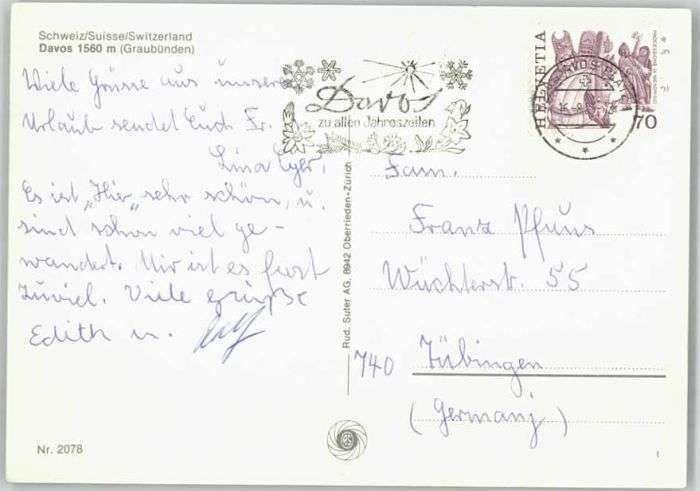 Schweiz/Suisse/Switzerland
Davos 1560 m (Graubünden)
Viele Grüsse aus unserem
Urlaub sendet Euch Fr.
Lina
Es ist "Hier" sehr schön, u.
sind schon viel ge-
wandert. Mir ist es fast
zuviel. Viele grüße
Edith u.
Nr. 2078
Davos
zu allen Jahreszeiten
HELVETIA
70
Rud. Suter AG, 8942 Oberrieden-Zürich
Fam.
Franz Pfuns
Wächterst. 55
740 Tübingen
(Germany)